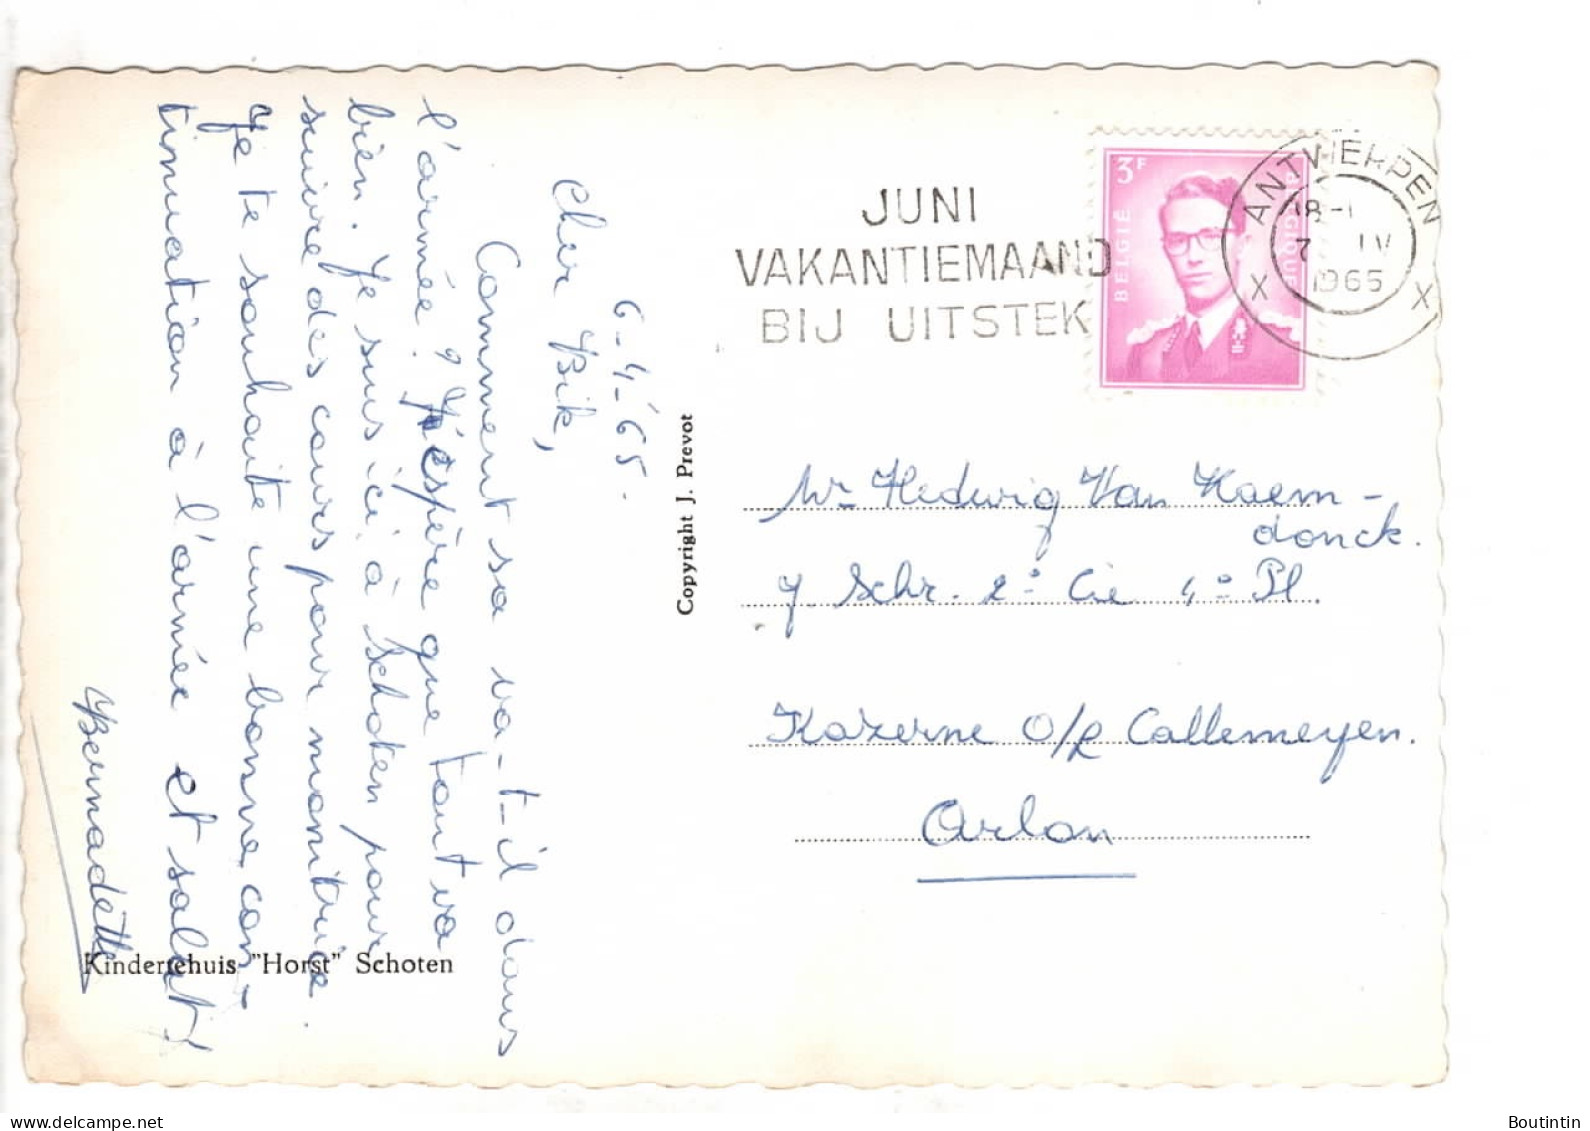 6-4-'65.
Cher Bik,
Comment sa va-t-il dans
l'armée? J'espère que tout va
bien. Je suis ici à Schoten pour
suivre des cours pour monitrice.
Je te souhaite une bonne con-
tinuation à l'armée et salut!
Bernadette
Kindertehuis "Horst" Schoten
Copyright J. Prevot
JUNI
VAKANTIEMAAND
BIJ UITSTEK
3F
BELGIË
BELGIQUE
ANTWERPEN
18-
7 IV
1965
X X
Mr Hedwig Van Kaem-
donck.
Schr. 2° Cie 4° Pl.
Kazerne O/L Callemeyen.
Arlon
Boutintin